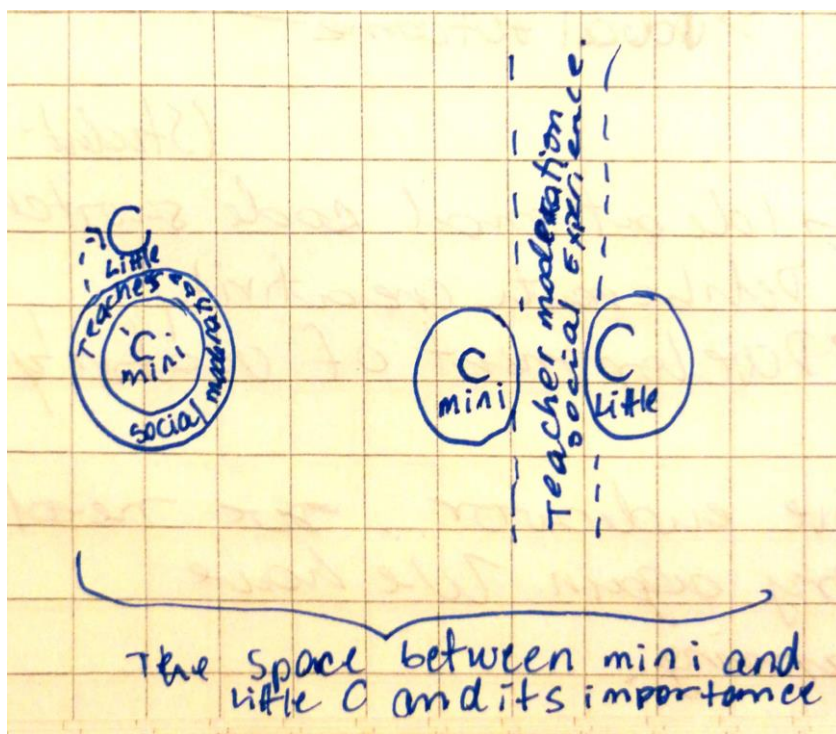 C
Little
Teacher
social
C
mini
Teacher moderation
social experience.
C
mini
C
Little
The space between mini and
Little C and its importance